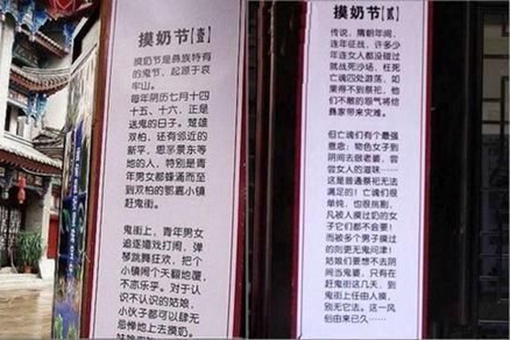 摸奶节【壹】
摸奶节是彝族特有
的鬼节，起源于哀
牢山。
每年阴历七月十四
十五、十六，正是
送鬼的日子。楚雄
双柏，还有邻近的
新平、思茅景东等
地的人，特别是青
年男女都蜂涌而至
到双柏的鄂嘉小镇
赶鬼街。
鬼街上，青年男女
追逐嬉戏打闹，弹
琴跳舞狂欢，把个
小镇闹个天翻地覆，
不亦乐乎。对于认
识不认识的姑娘，
小伙子都可以肆无
忌惮地上去摸奶。
摸奶节【贰】
传说，隋朝年间，
连年征战，许多少
年连女人都没碰过
就战死沙场，枉死
亡魂四处游荡，如
果得不到祭祀，他
们不散的怨气将给
彝家带来灾难。
但亡魂们有个最强
意念：物色女子到
阴间去做老婆，尝
尝女人的滋味……
这是普通祭祀无法
满足的！亡魂们很
单纯，也很挑剔，
凡被人摸过奶的女
子它们都不会要！
而被多个男子摸过
的则更无鬼问津！
姑娘们要想不去阴
间当鬼婆，只有在
赶鬼街这几天，到
鬼街上任由人摸，
别无它法。这一风
俗由来已久……